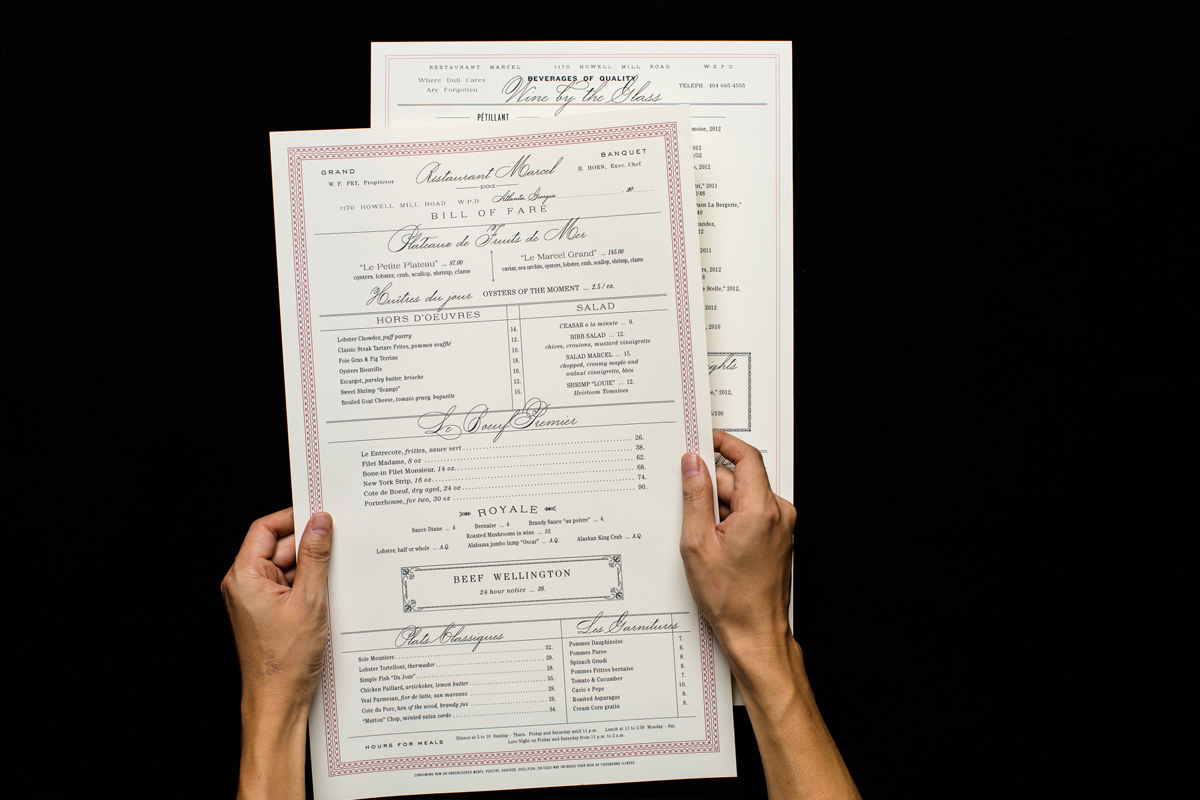 RESTAURANT MARCEL 1170 HOWELL MILL ROAD W.P.D
Where Dull Cares
Are Forgotten
BEVERAGES OF QUALITY
Wine by the Glass
TELEPH. 404 665-4555
PÉTILLANT
GRAND
W. F. FRY, Proprietor
Restaurant Marcel
BANQUET
B. HORN, Exec. Chef
1170 HOWELL MILL ROAD W.P.D. Atlanta Georgia 20
BILL OF FARE
Plateaux de Fruits de Mer
"Le Petite Plateau" ... 87.00
oysters, lobster, crab, scallop, shrimp, clams
"Le Marcel Grand" ... 145.00
caviar, sea urchin, oysters, lobster, crab, scallop, shrimp, clams
Huîtres du jour OYSTERS OF THE MOMENT ... 2.5 / ea.
HORS D'OEUVRES
Lobster Chowder, puff pastry 14.
Classic Steak Tartare Frites, pommes soufflé 12.
Foie Gras & Fig Terrine 10.
Oysters Bienville 18.
Escargot, parsley butter, brioche 16.
Sweet Shrimp "Scampi" 12.
Broiled Goat Cheese, tomato gravy, baguette 15.
SALAD
CEASAR a la minute ... 9.
BIBB SALAD ... 12.
chives, croutons, mustard vinaigrette
SALAD MARCEL ... 15.
chopped, creamy maple and
walnut vinaigrette, bleu
SHRIMP "LOUIE" ... 12.
Heirloom Tomatoes
Le Boeuf Premier
Le Entrecote, frittes, sauce vert 26.
Filet Madame, 8 oz 38.
Bone-in Filet Monsieur, 14 oz 62.
New York Strip, 16 oz 68.
Cote de Boeuf, dry aged, 24 oz 74.
Porterhouse, for two, 30 oz 90.
ROYALE
Sauce Diane ... 4. Bernaise ... 4. Brandy Sauce "au poivre" ... 4.
Roasted Mushrooms in wine ... 10.
Lobster, half or whole ... A.Q. Alabama jumbo lump "Oscar" ... A.Q. Alaskan King Crab ... A.Q.
BEEF WELLINGTON
24 hour notice ... 36.
Plats Classiques
Sole Meuniere 32.
Lobster Tortelloni, thermador 29.
Simple Fish "Du Jour" 28.
Chicken Paillard, artichokes, lemon butter 35.
Veal Parmesan, fior de latte, san marzano 28.
Cote du Porc, hen of the wood, brandy jus 29.
"Mutton" Chop, minted salsa verde 34.
Les Garnitures
Pommes Dauphinoise 7.
Pommes Puree 6.
Spinach Gnudi 8.
Pommes Frittes bernaise 8.
Tomato & Cucumber 7.
Cacio e Pepe 10.
Roasted Asparagus 9.
Cream Corn gratin 8.
HOURS FOR MEALS
Dinner at 5 to 10 Sunday - Thurs. Friday and Saturday until 11 p.m. Lunch at 11 to 2:00 Monday - Sat.
Late Night on Friday and Saturday from 11 p.m. to 2 a.m.
CONSUMING RAW OR UNDERCOOKED MEATS, POULTRY, SEAFOOD, SHELLFISH, OR EGGS MAY INCREASE YOUR RISK OF FOODBORNE ILLNESS.